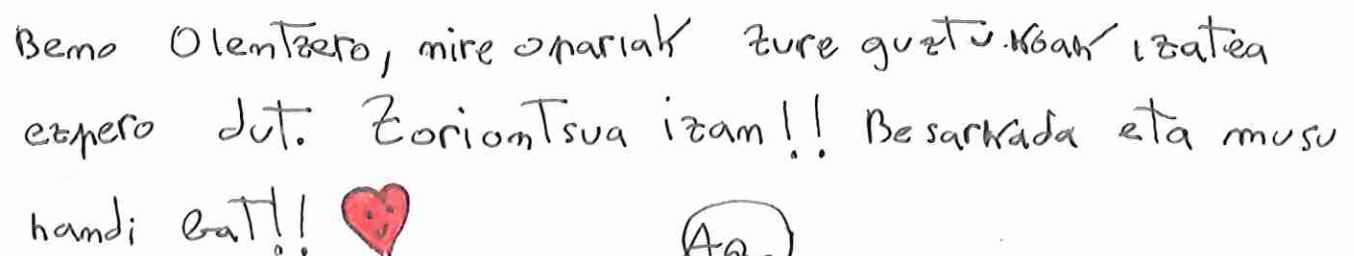 Beno Olentzero, nire opariak zure guztukoak izatea
ezpero dut. Zoriontsua izan!! Besarkada eta musu
handi bat!!